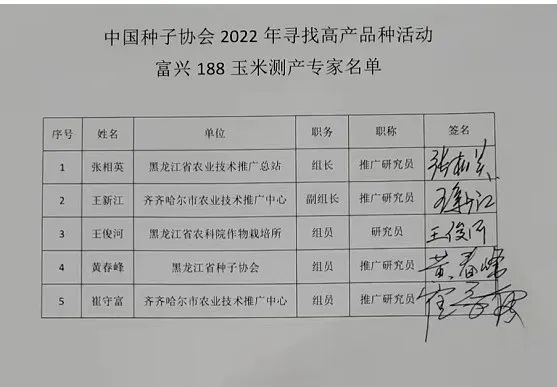 中国种子协会 2022 年寻找高产品种活动
富兴 188 玉米测产专家名单
序号 姓名 单位 职务 职称 签名
1 张相英 黑龙江省农业技术推广总站 组长 推广研究员 张相英
2 王新江 齐齐哈尔市农业技术推广中心 副组长 推广研究员 王新江
3 王俊河 黑龙江省农科院作物栽培所 组员 研究员 王俊河
4 黄春峰 黑龙江省种子协会 组员 推广研究员 黄春峰
5 崔守富 齐齐哈尔市农业技术推广中心 组员 推广研究员 崔守富